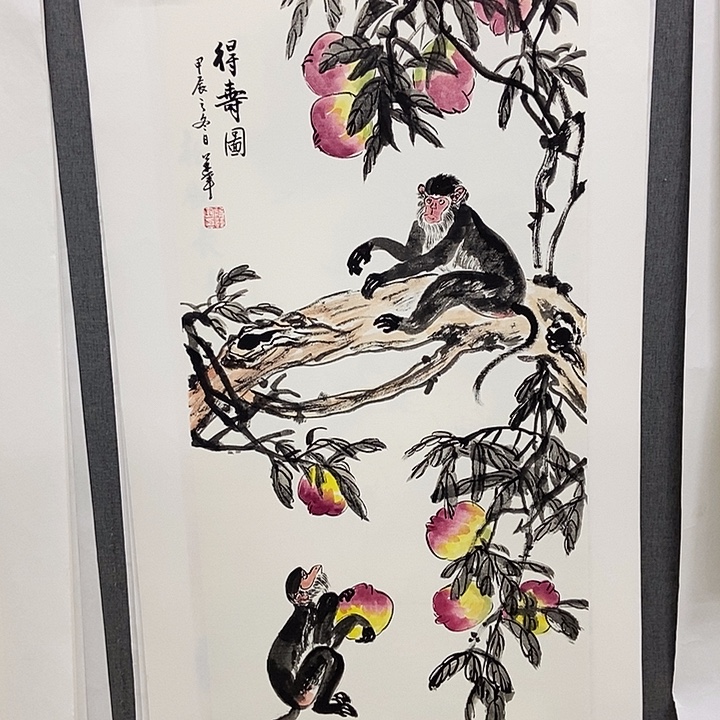 得壽圖
甲辰之冬日